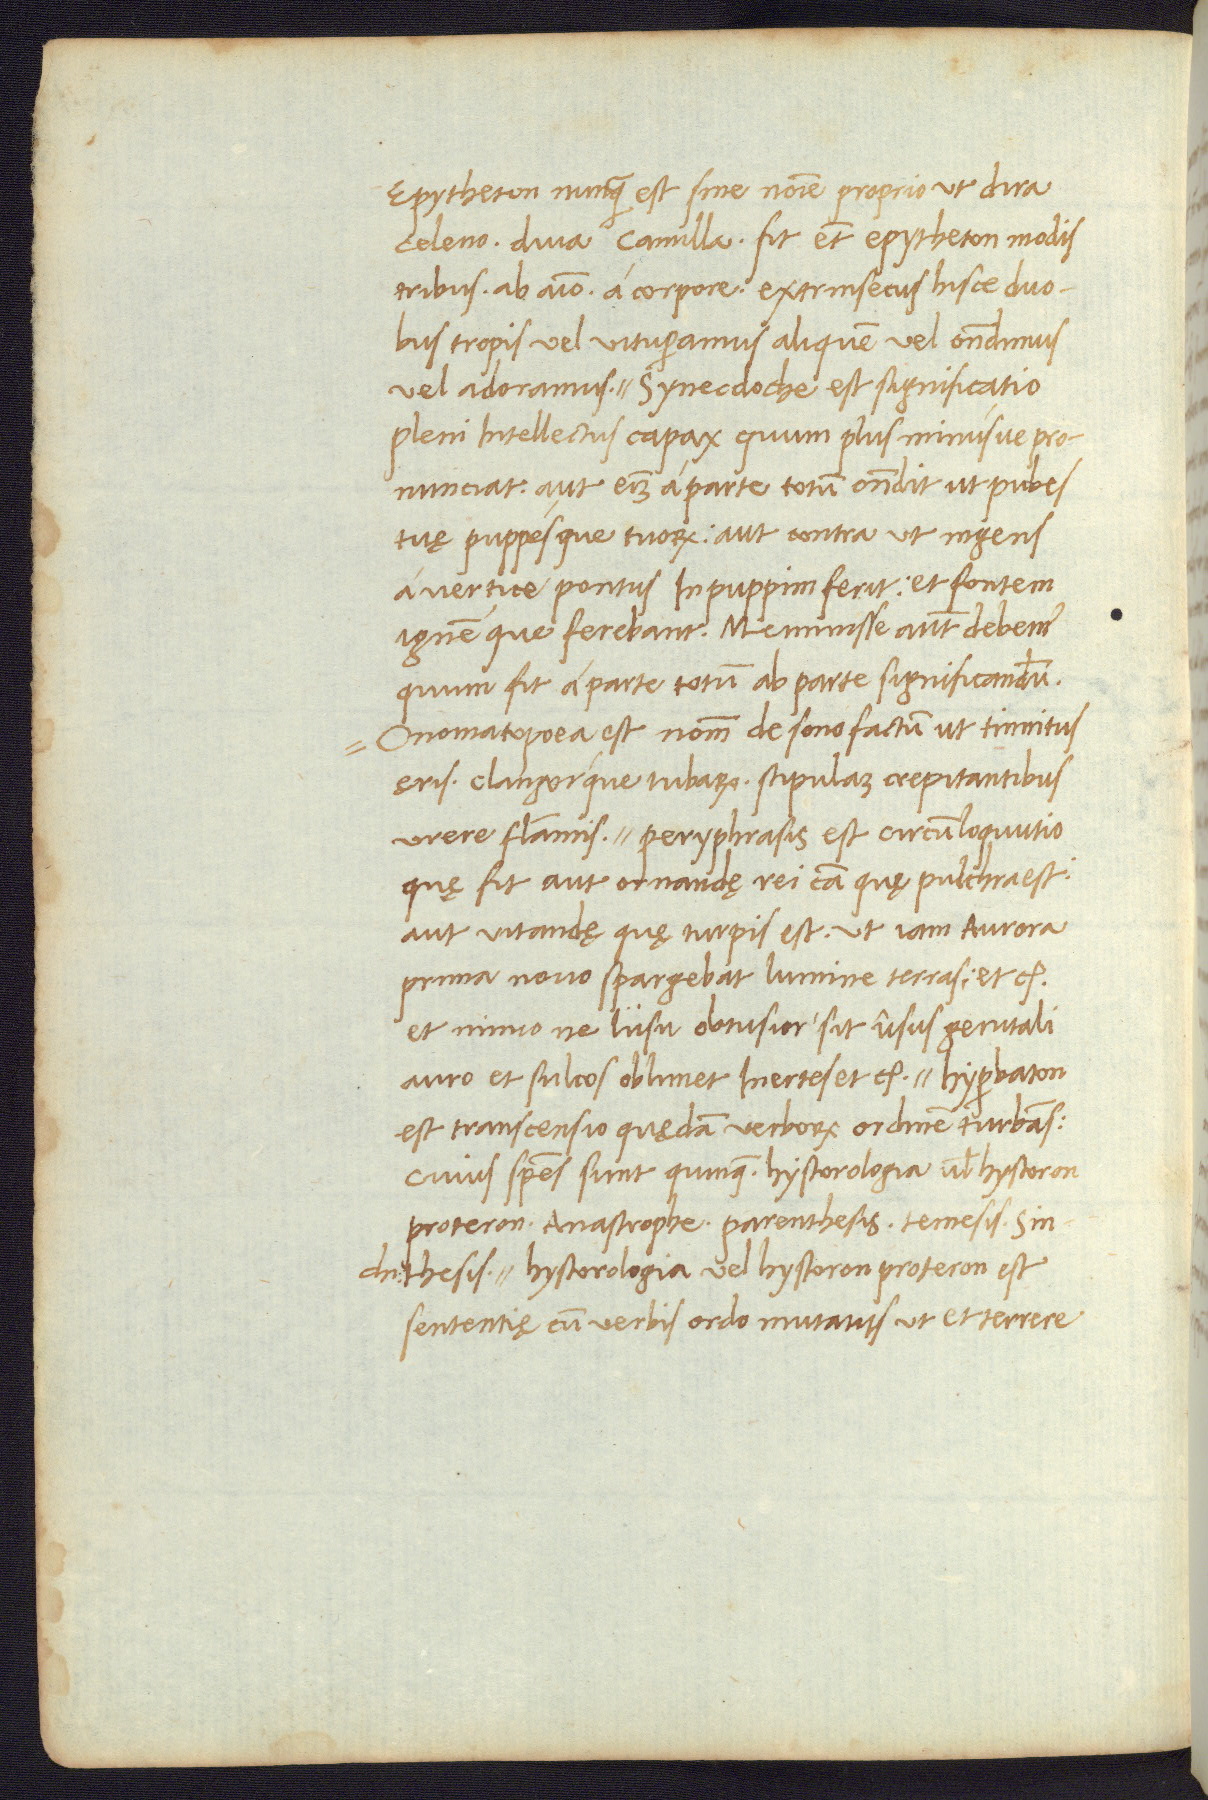 Epytheton nunq̃ est sine noīe proprio ut dira
celeno. diua Camilla. fit et̃ epytheton modis
tribus. ab aīo. á corpore. extrinsecus hisce duo-
bus tropis vel vituꝑamus aliquẽ vel oñdimus
vel adoramus.// Synecdoche est significatio
pleni Intellectus capax quum plus minúsue pro-
nunciat. aut eñ á parte totũ oñdit ut pubes
tuę puppésque tuoꝝ: aut contra ut ingens
á vertice pontus In puppim ferit: et fontem
ignẽ que ferebant. Meminisse aut̃ debem᷒
quum fit á parte totũ ab parte significandũ.
= Onomatopoea est nom̃ de sono factũ ut tinnitus
ęris. clangórque tubaꝝ. stipulaꝫ crepitantibus
urere flãmis.// peryphrasis est circũloquutio
quę fit aut ornandę rei cã quę pulchra est:
aut vitandę quę turpis est. ut iam Aurora
prima nouo spargebat lumine terras: et cę.
et nimio ne lüsu obtusior sit ûsus genitali
auro et sulcos oblimet Inertes et cę.// hyꝑbaton
est transcensio quędã verboꝝ ordinẽ turbãs:
cuius sp̃es sunt quinq̃. hÿstorologia ul̃ hystoron
proteron. Anastrophe. parenthesis. temesis. Sin-
chi:thesis.// hystorologia vel hystoron proteron est
sententię cũ verbis ordo mutatus ut et terrere